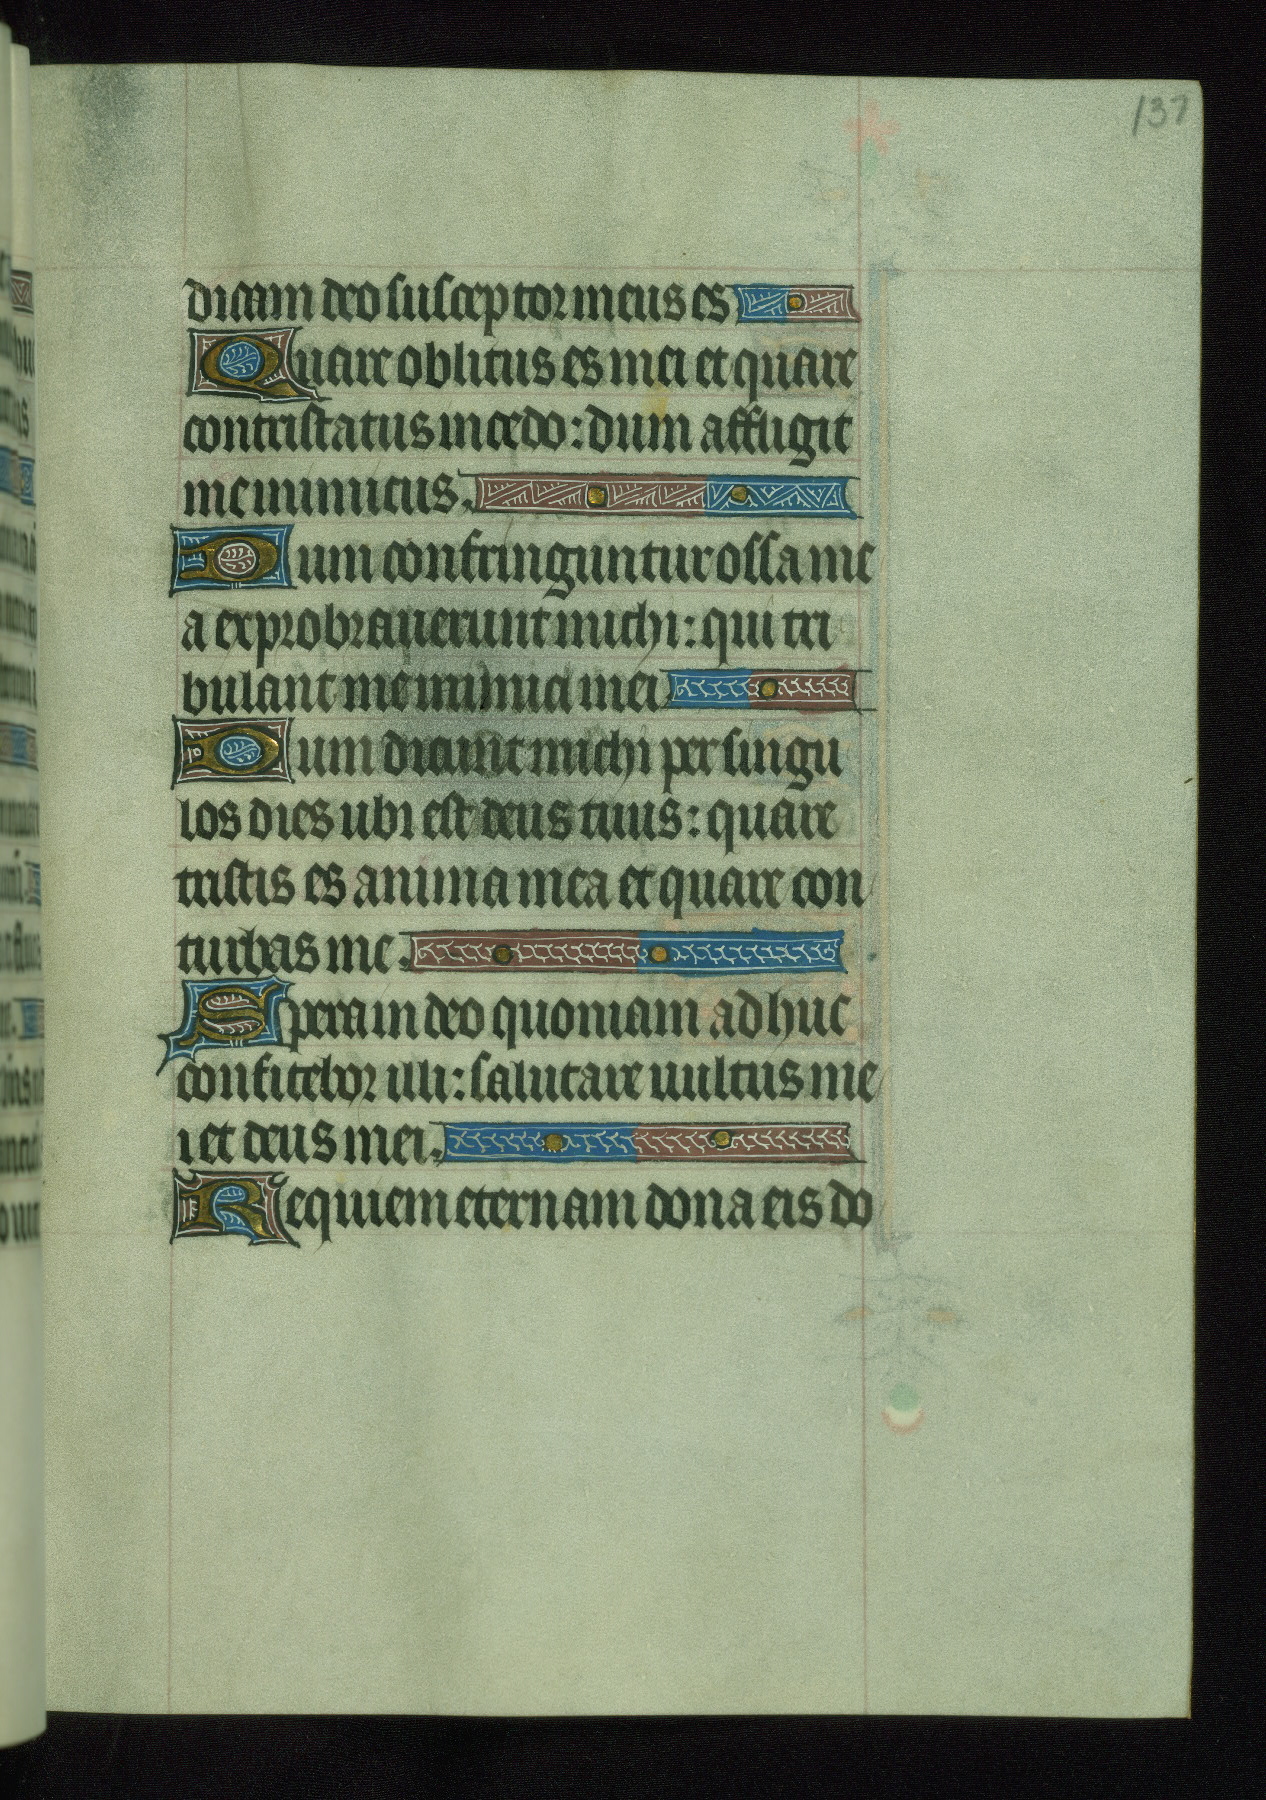 137
dicam deo susceptor meus es
Quare oblitus es mei et quare
contristatus incedo: dum affligit
me inimicus.
Dum confringuntur ossa me
a exprobraverunt michi: qui tri
bulant me inimici mei
Dum dicunt michi per singu
los dies ubi est deus tuus: quare
tristis es anima mea et quare con
turbas me.
Spera in deo quoniam adhuc
confitebor illi: salutare uultus me
i et deus mei.
Requiem eternam dona eis do